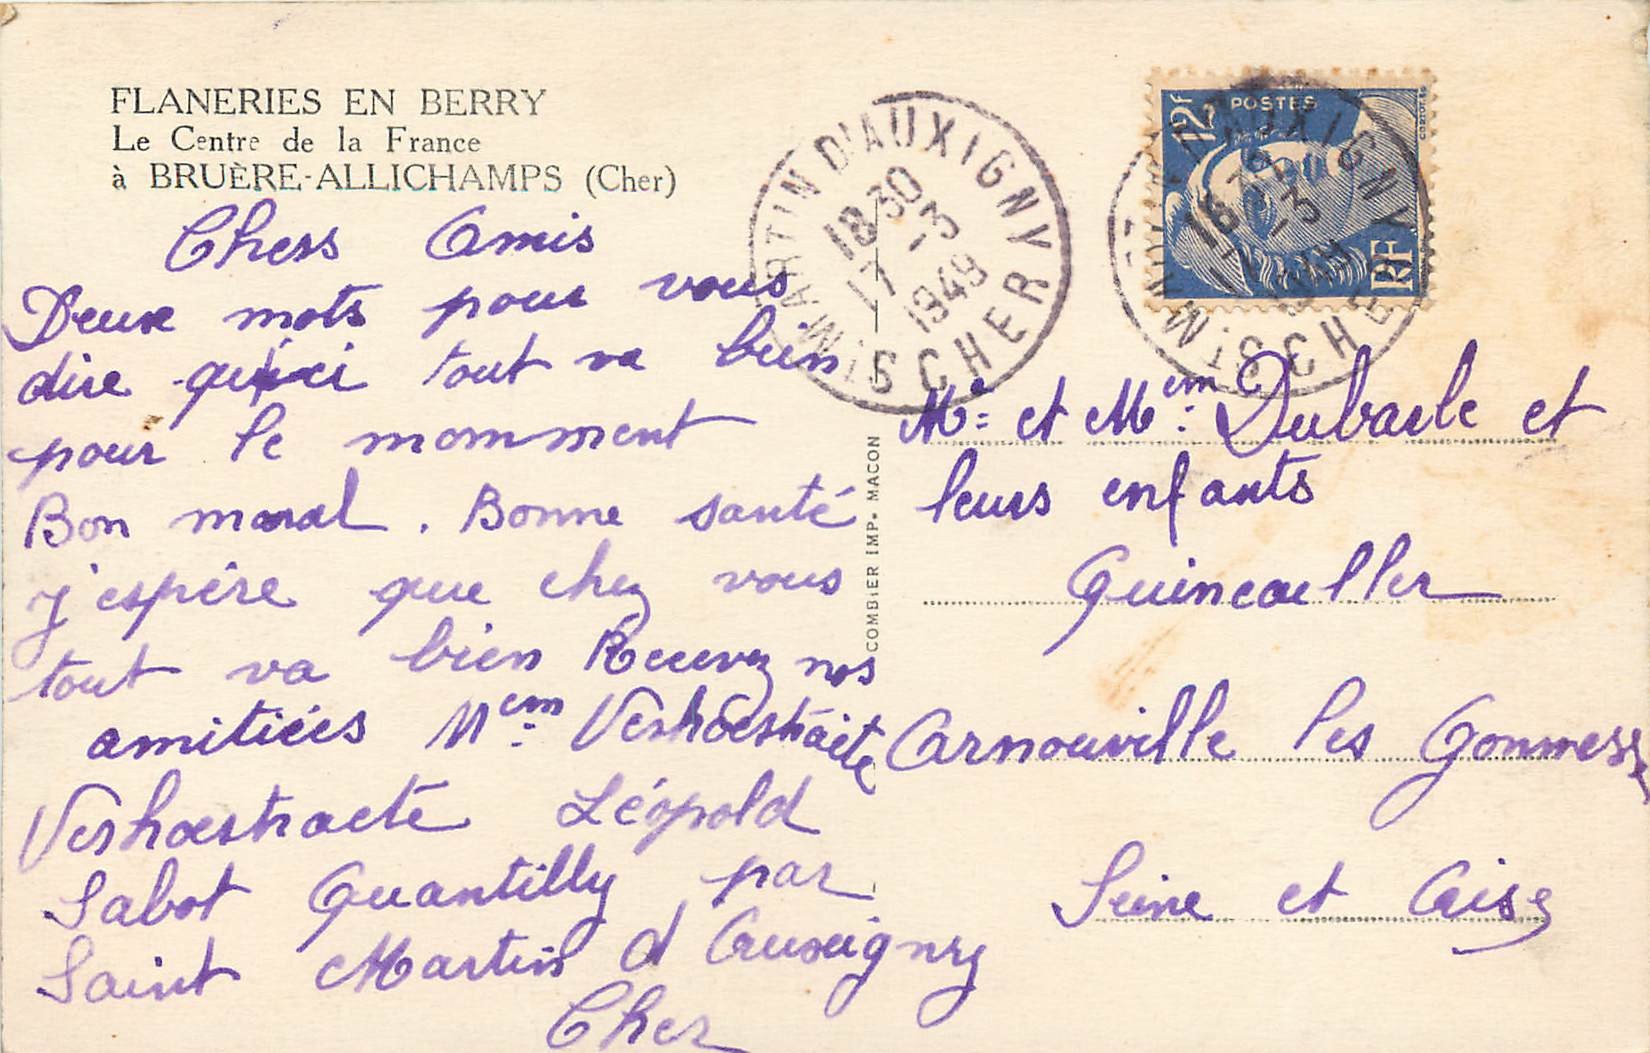 FLANERIES EN BERRY
Le Centre de la France
à BRUÈRE-ALLICHAMPS (Cher)
Chers Amis
Deux mots pour vous
dire qu'ici tout va bien
pour le momment
Bon moral. Bonne santé
J'espère que chez vous
tout va bien Recevez nos
amitiées Mem Verhoestraete
Verhoestraete Léopold
Sabot Quantilly par
Saint Martin d Auxigny
Cher
COMBIER IMP- MACON
ST MARTIN D'AUXIGNY
18 30
17 -3
1949
CHER
12F POSTES
RF
ST MARTIN D'AUXIGNY
18 30
17 -3
1949
CHER
Mr et Mem Dubarle et
leurs enfants
Quincailler
Carnouville les Gonness
Seine et Oise